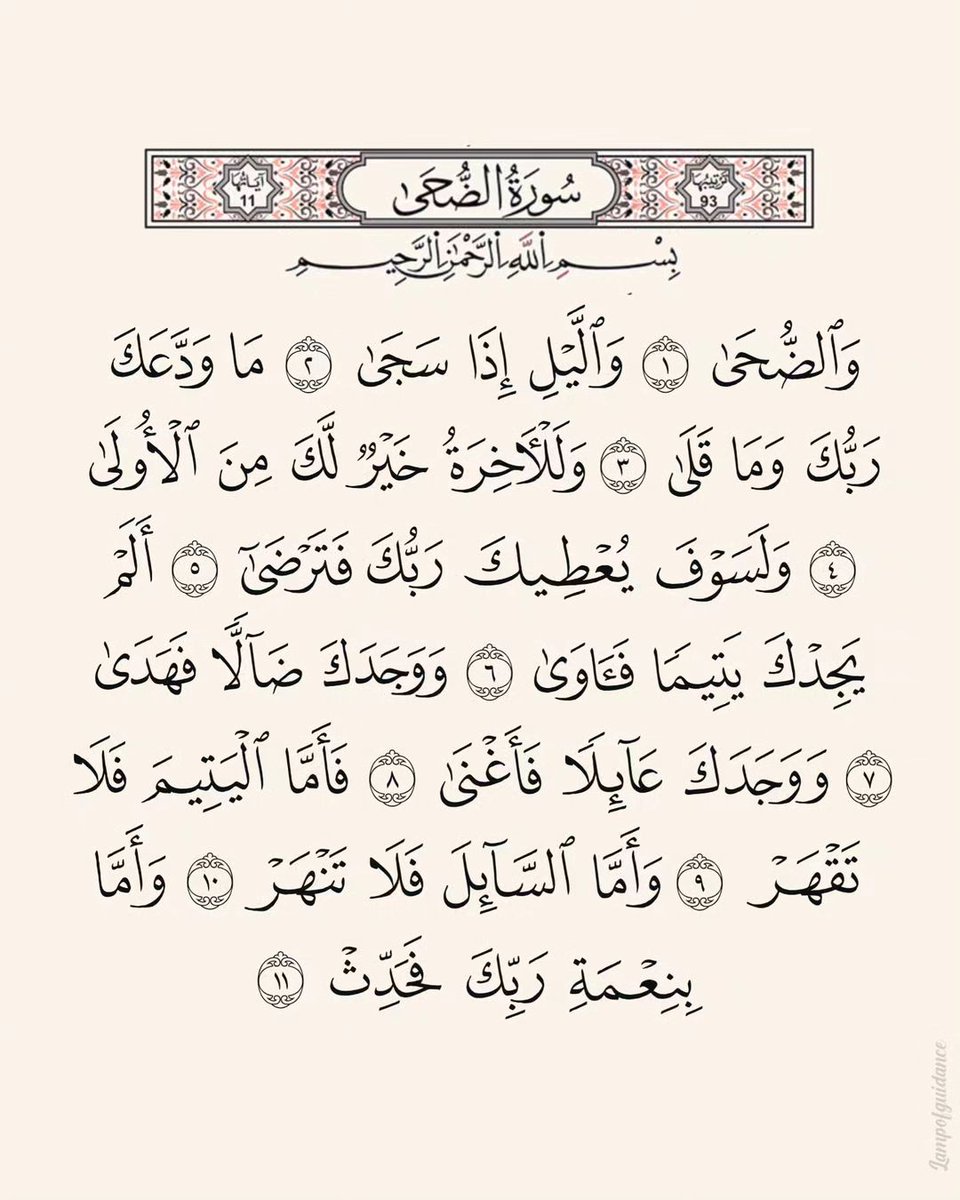 ترتيبها 93 سُورَةُ الضُّحَىٰ آياتها 11
بِسْمِ اللَّهِ الرَّحْمَٰنِ الرَّحِيمِ
وَٱلضُّحَىٰ ١ وَٱلَّيْلِ إِذَا سَجَىٰ ٢ مَا وَدَّعَكَ
رَبُّكَ وَمَا قَلَىٰ ٣ وَلَلْـَٔاخِرَةُ خَيْرٌ لَّكَ مِنَ ٱلْأُولَىٰ
٤ وَلَسَوْفَ يُعْطِيكَ رَبُّكَ فَتَرْضَىٰٓ ٥ أَلَمْ
يَجِدْكَ يَتِيمًا فَـَٔاوَىٰ ٦ وَوَجَدَكَ ضَآلًّا فَهَدَىٰ
٧ وَوَجَدَكَ عَآئِلًا فَأَغْنَىٰ ٨ فَأَمَّا ٱلْيَتِيمَ فَلَا
تَقْهَرْ ٩ وَأَمَّا ٱلسَّآئِلَ فَلَا تَنْهَرْ ١٠ وَأَمَّا
بِنِعْمَةِ رَبِّكَ فَحَدِّثْ ١١
Lampofguidance